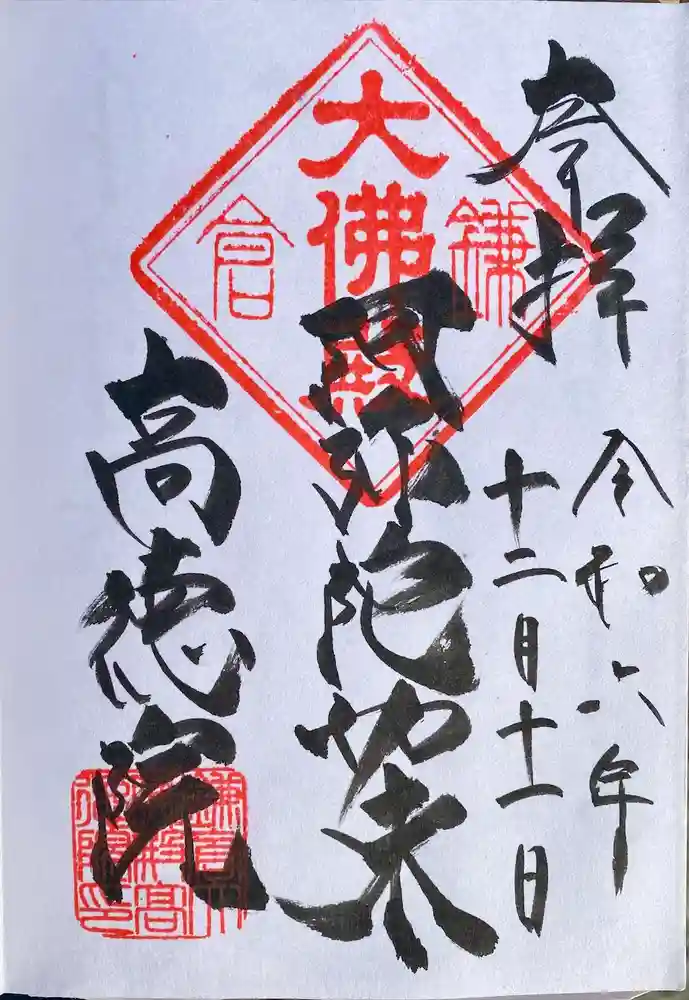 奉拝
令和六年
十二月十一日
鎌
大佛殿
倉
阿弥陀如来
高徳院